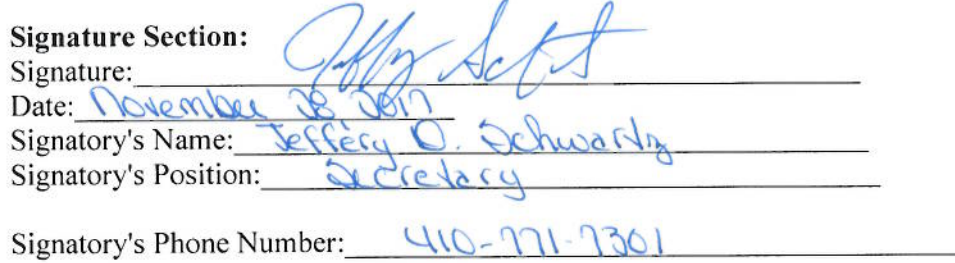 Signature Section:
Signature:
Date: November 28 2017
Signatory's Name: Jeffery D. Schwartz
Signatory's Position: Secretary
Signatory's Phone Number: 410-771-7301